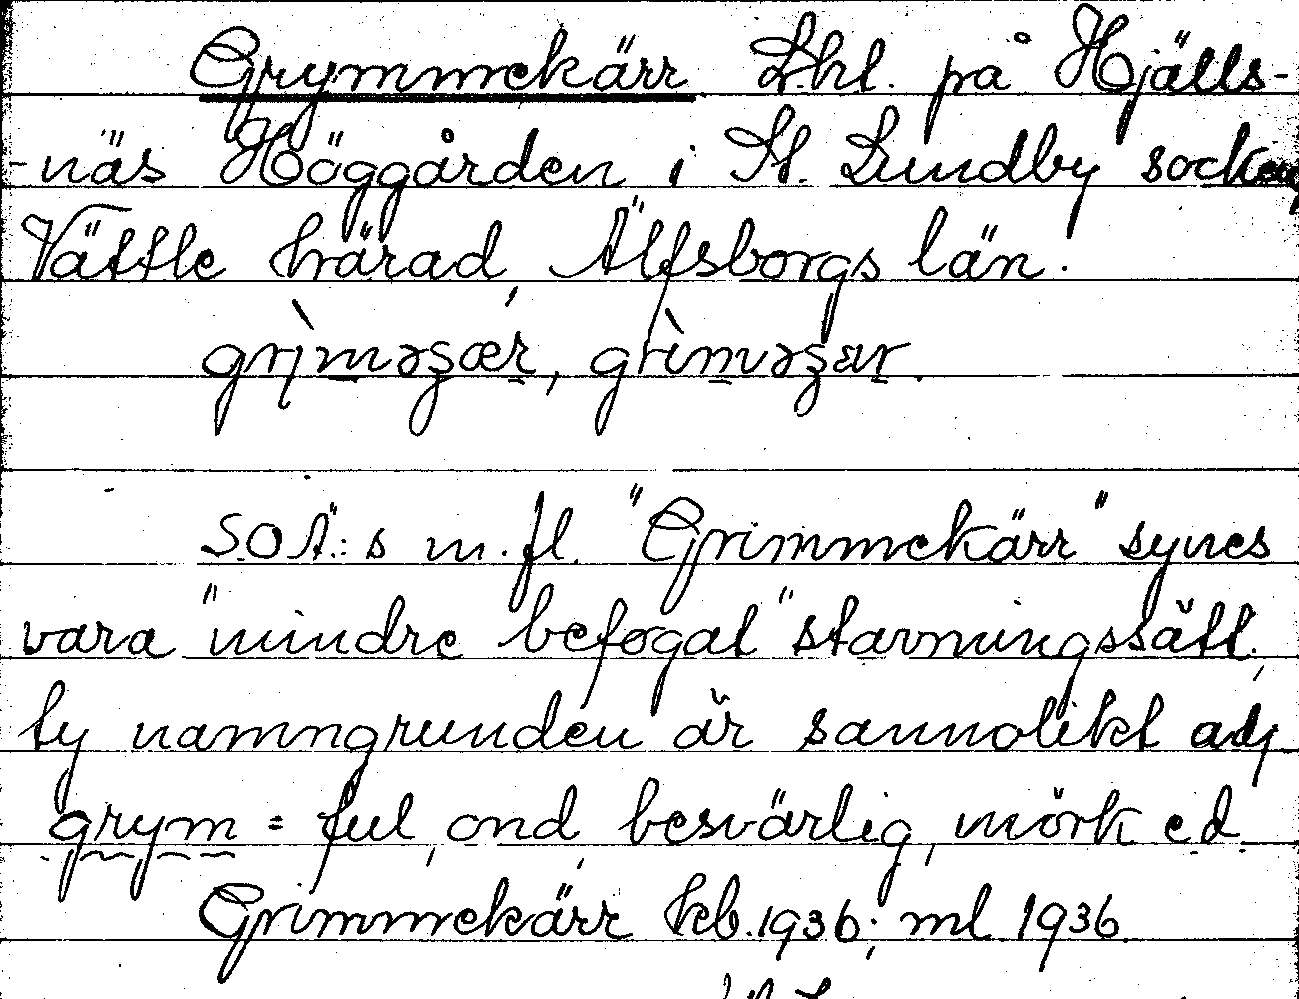 Grymmekärr Lhl. på Hjälls-
-näs Höggården i St. Lundby socken,
Vättle härad, Älfsborgs län.
SOÄ:s m.fl. "Grimmekärr" synes
vara "mindre befogat" stavningssätt,
ty namngrunden är sannolikt adj
grym = ful, ond, besvärlig, mörk e.d.
Grimmekärr keb. 1936; ml 1936